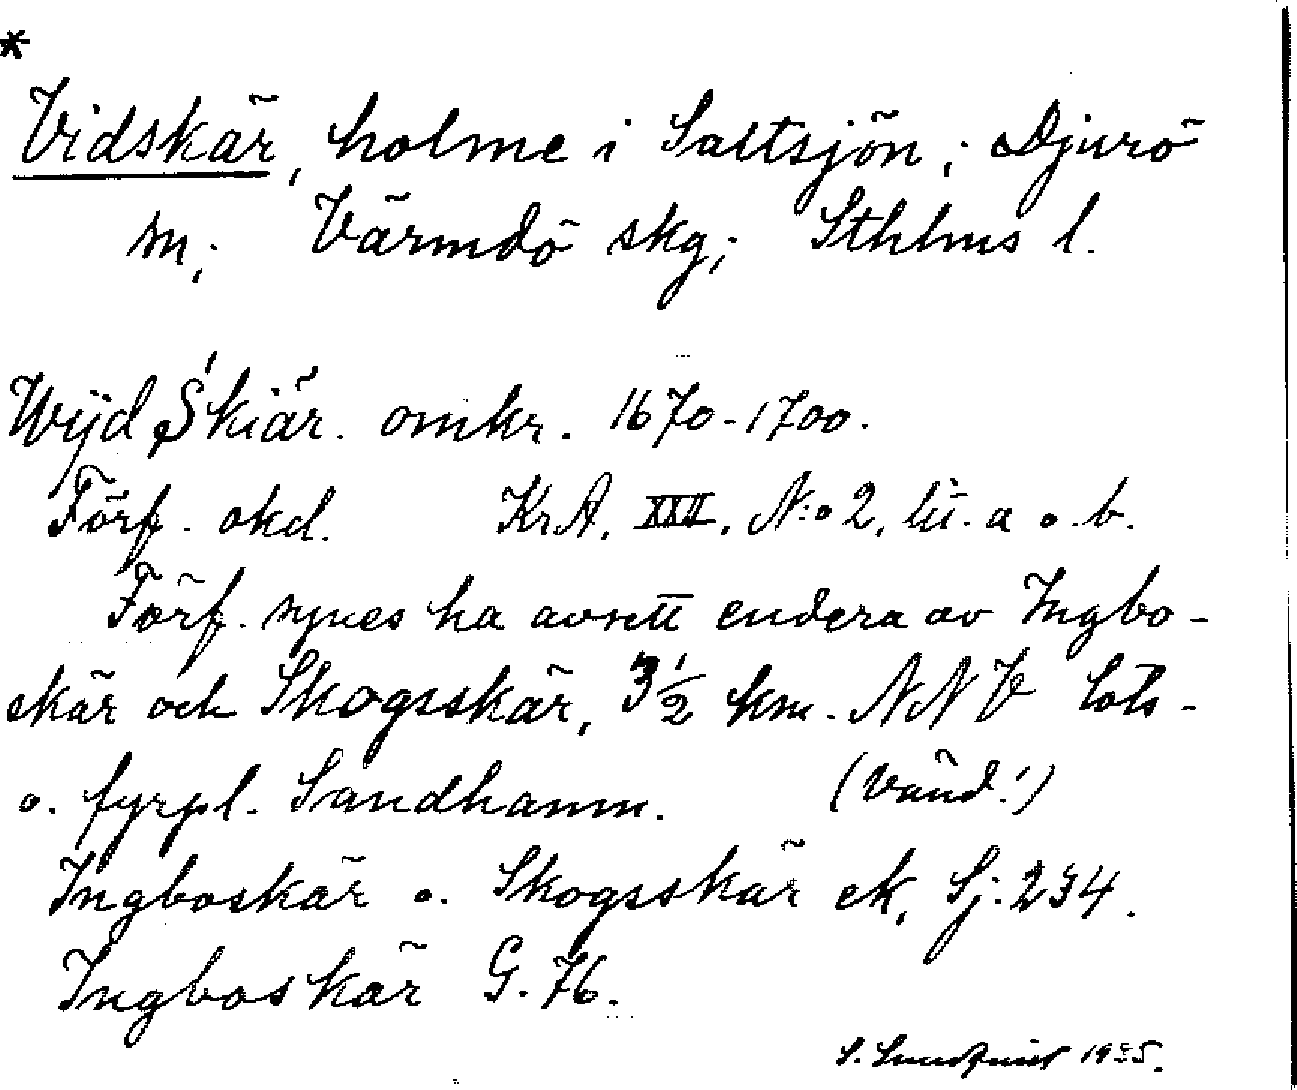 *
Vidskär, holme i Saltsjön; Djurö
sn; Värmdö skg; Sthlms l.
Wijd Skiär. omkr. 1670-1700.
Förf. okd. KrA. XXX. N:o 2, lit. a o. b.
Förf. synes ha avsett endera av Ingbo-
skär och Skogsskär, 3 1/2 km. NNV lots-
o. fyrpl. Sandhamn. (Vänd!)
Ingboskär o. Skogsskär ek. Sj. 234.
Ingboskär G. 76.
S. Lundqvist 1935.